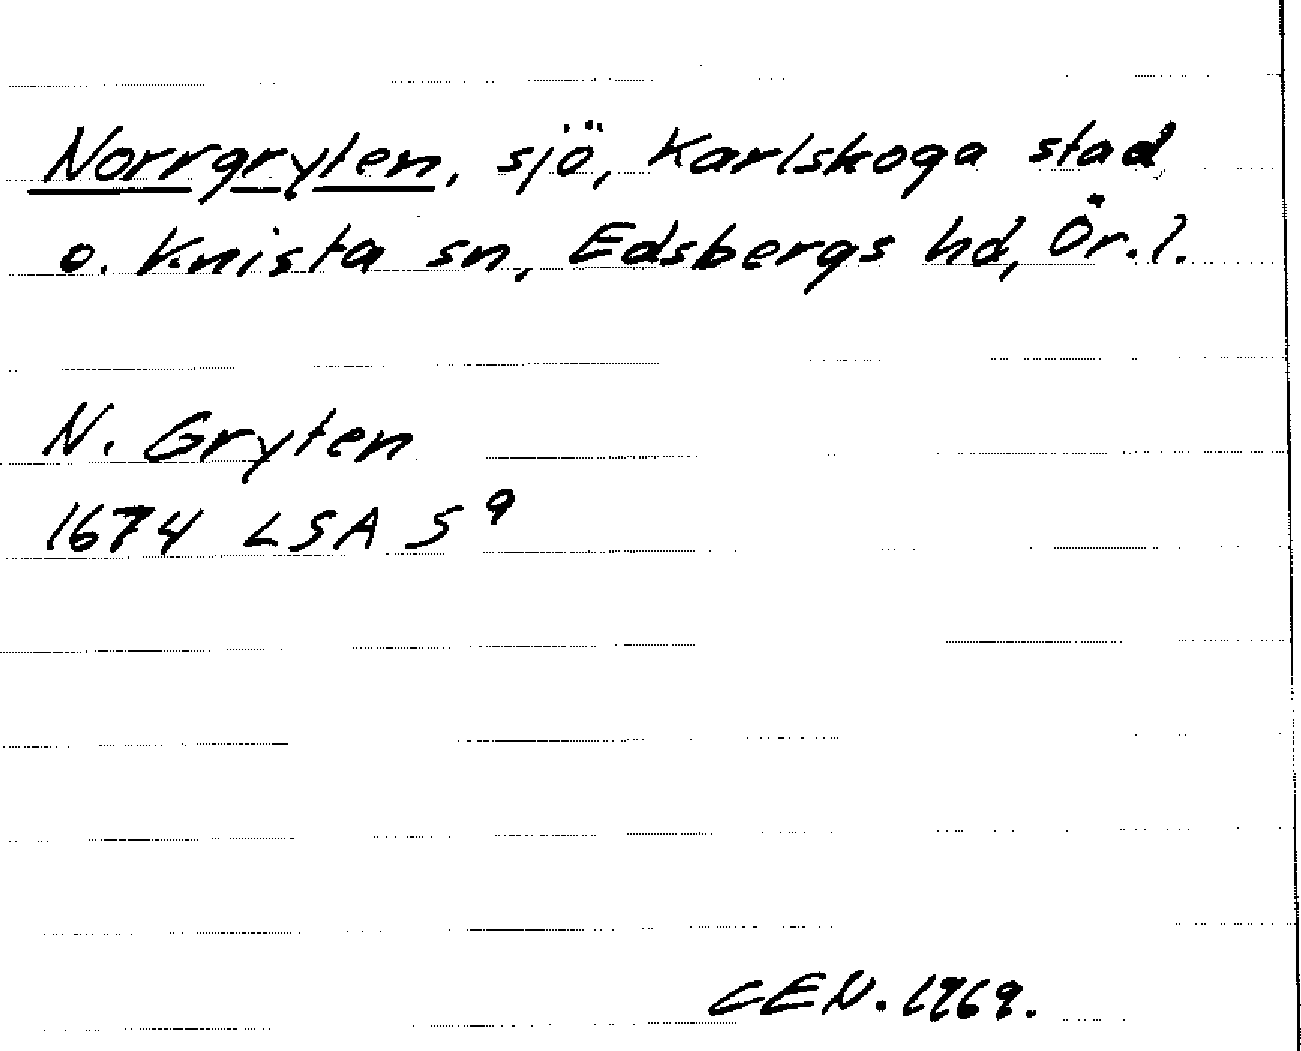 Norrgryten, sjö, Karlskoga stad
o. Knista sn, Edsbergs hd, Ör. l.
N. Gryten
1674 LSA S 9
CEN. 1969.